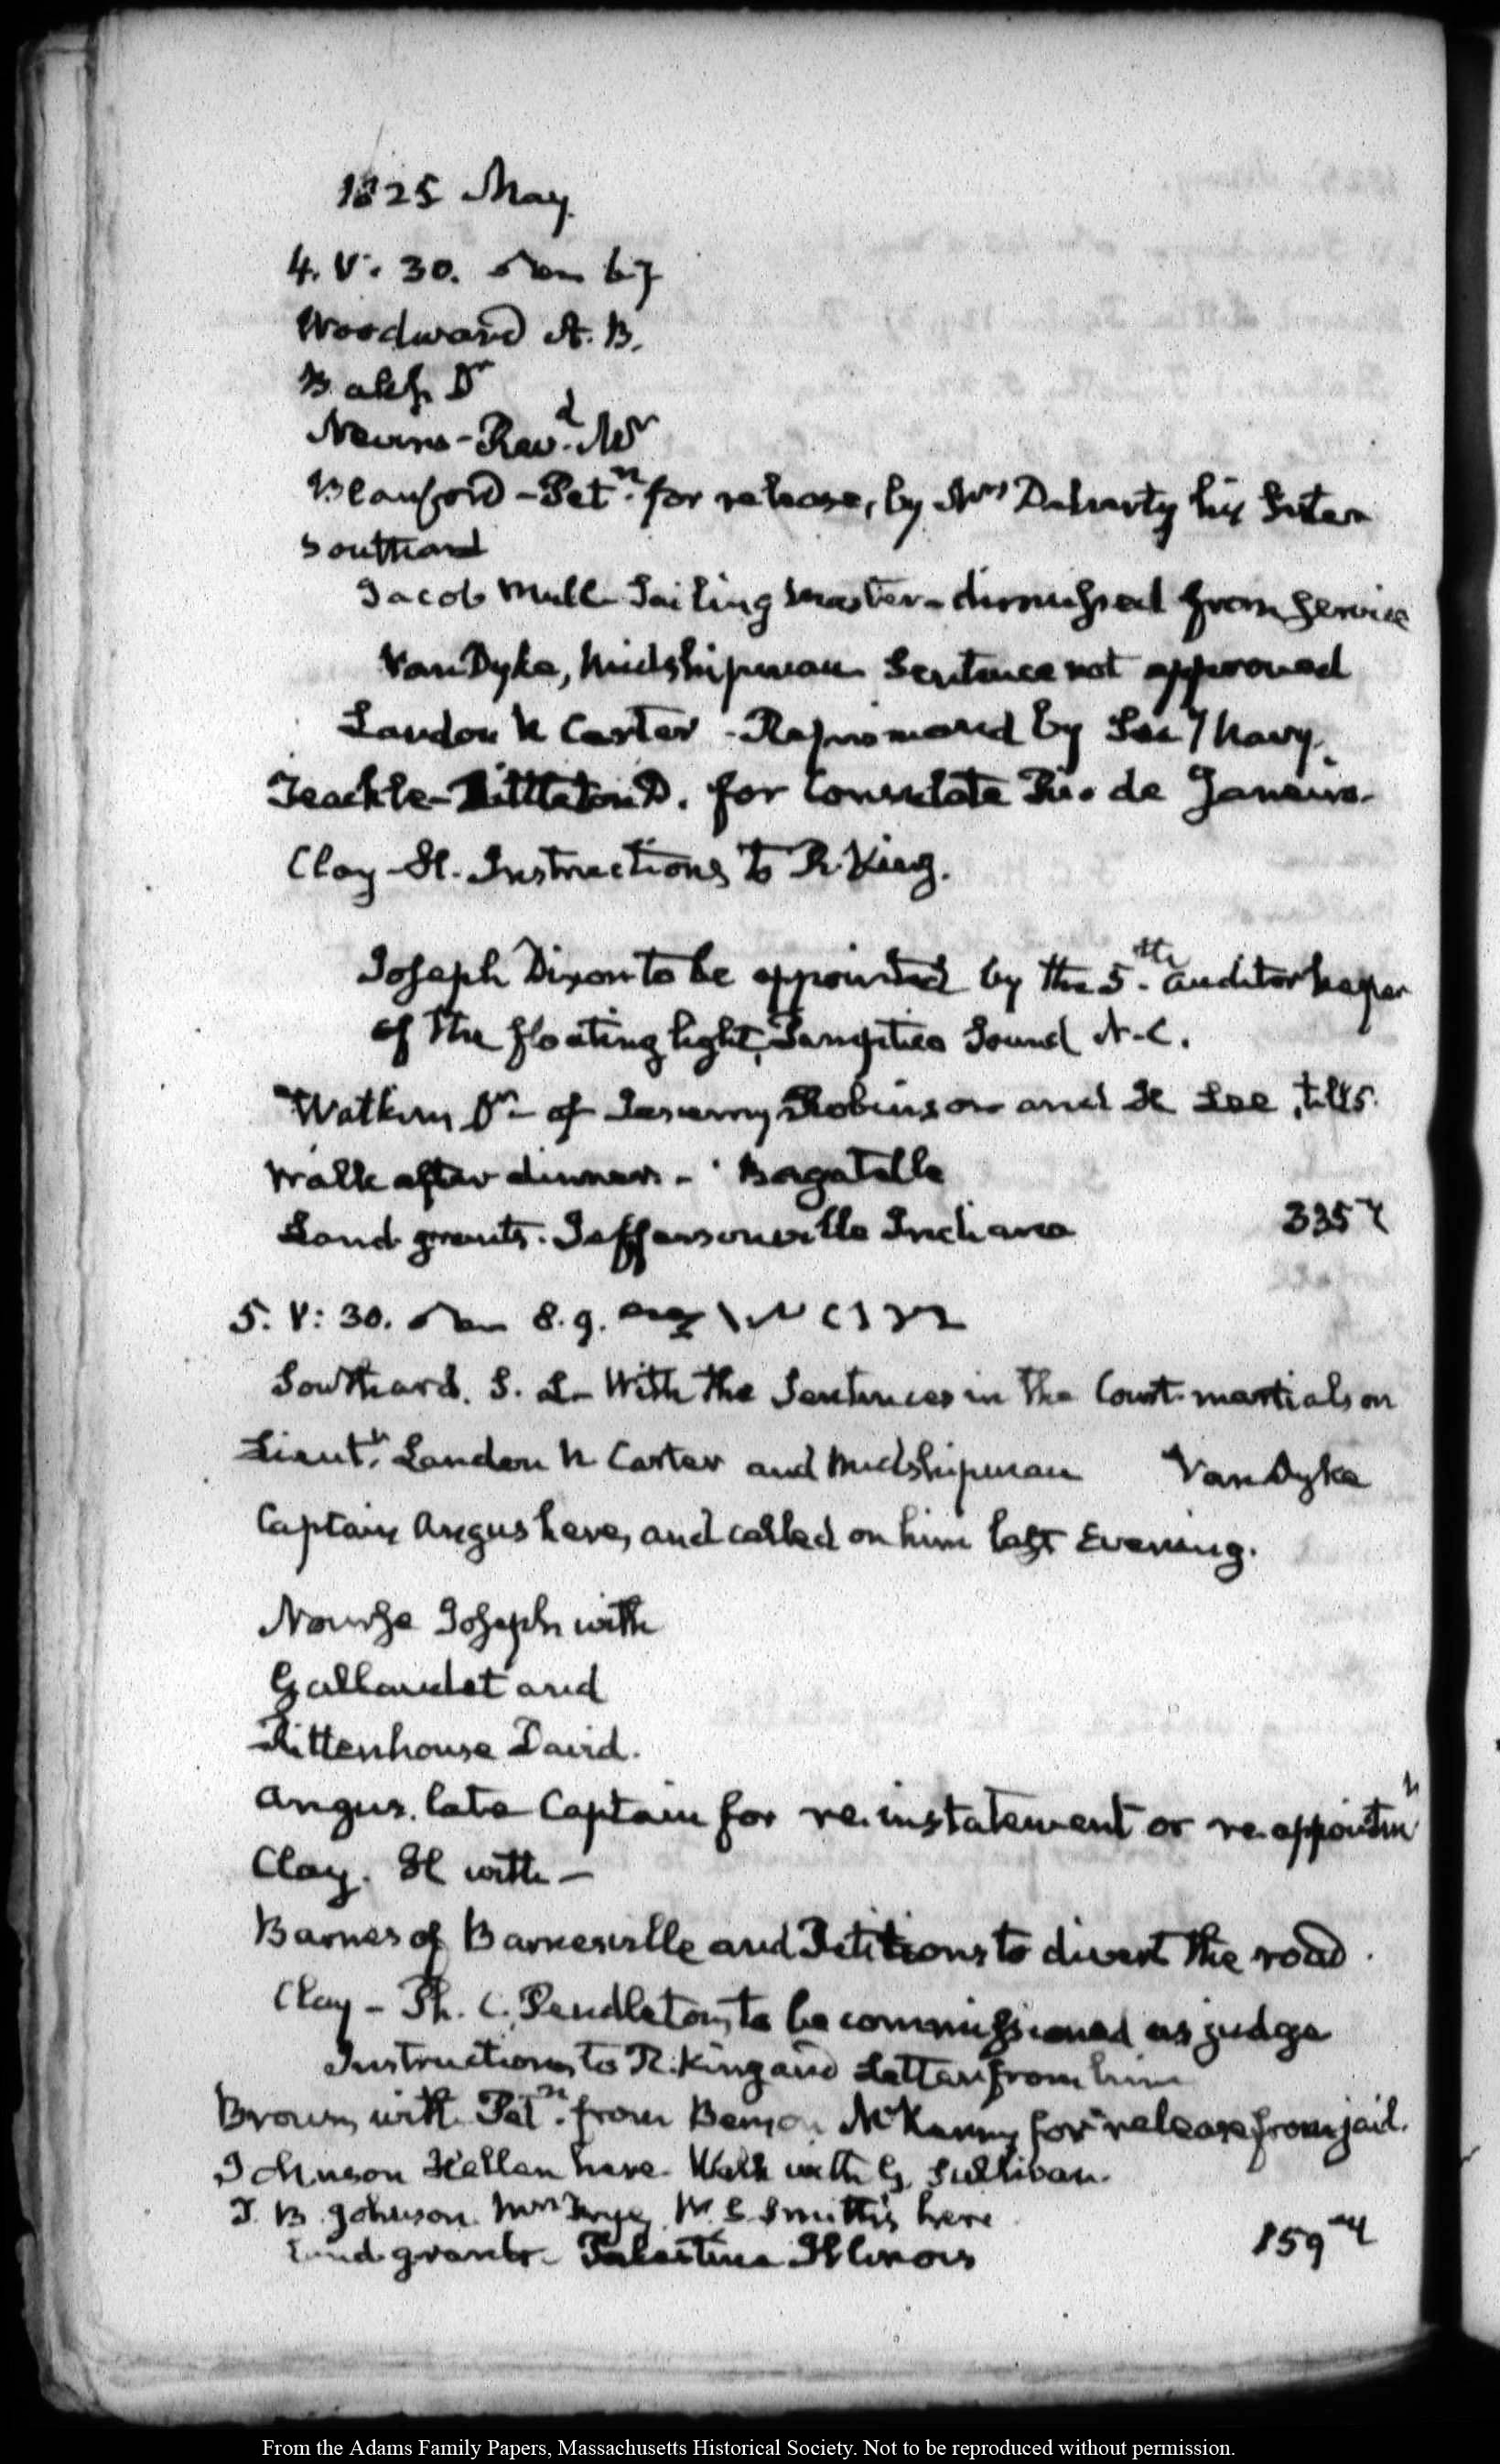 1825 May.
4. V: 30.
Woodward A. B.
Balch Dr
Nevins - Revd. Mr
Blanford - Petn. for release, by Mrs Doherty his Sister
Southard
Jacob Mull Sailing Master - dismissed from Service
VanDyke, Midshipman Sentence not approved
Landon N Carter - Reprimand by Sec y Navy.
Teackle - Littleton D. for Consulate Rio de Janeiro.
Clay - H. Instructions to R. King.
Joseph Dixon to be appointed by the 5.th auditor keeper
of the floating light, Sound N. C.
Watkins Dr - of Robinson and H Lee,
Walk after dinner - Bagatelle
Land grants. Jeffersonville Indiana 335
5. V: 30. 8. 9.
Southard. S. L - With the Sentences in the Court-martials on
Lieutt. Landon N Carter and Midshipman VanDyke
Captain Angus here, and called on him last Evening.
Nourse Joseph with
Gallaudet and
Rittenhouse David.
Angus. late Captain for re-instatement or re-appointmt
Clay. H with -
Barnes of Barnesville and Petitions to divert the road.
Clay - Ph. C. Pendleton, to be commissioned as judge
Instructions to R. King and Letter from him
Brown, with Petn. from McKenny for release from jail.
Johnson Hellen here. Walk with G. Sullivan.
T. B. Johnson. Mrs Frye, W. S. Smith's here
Land grants - Palestine Illinois 159
From the Adams Family Papers, Massachusetts Historical Society. Not to be reproduced without permission.